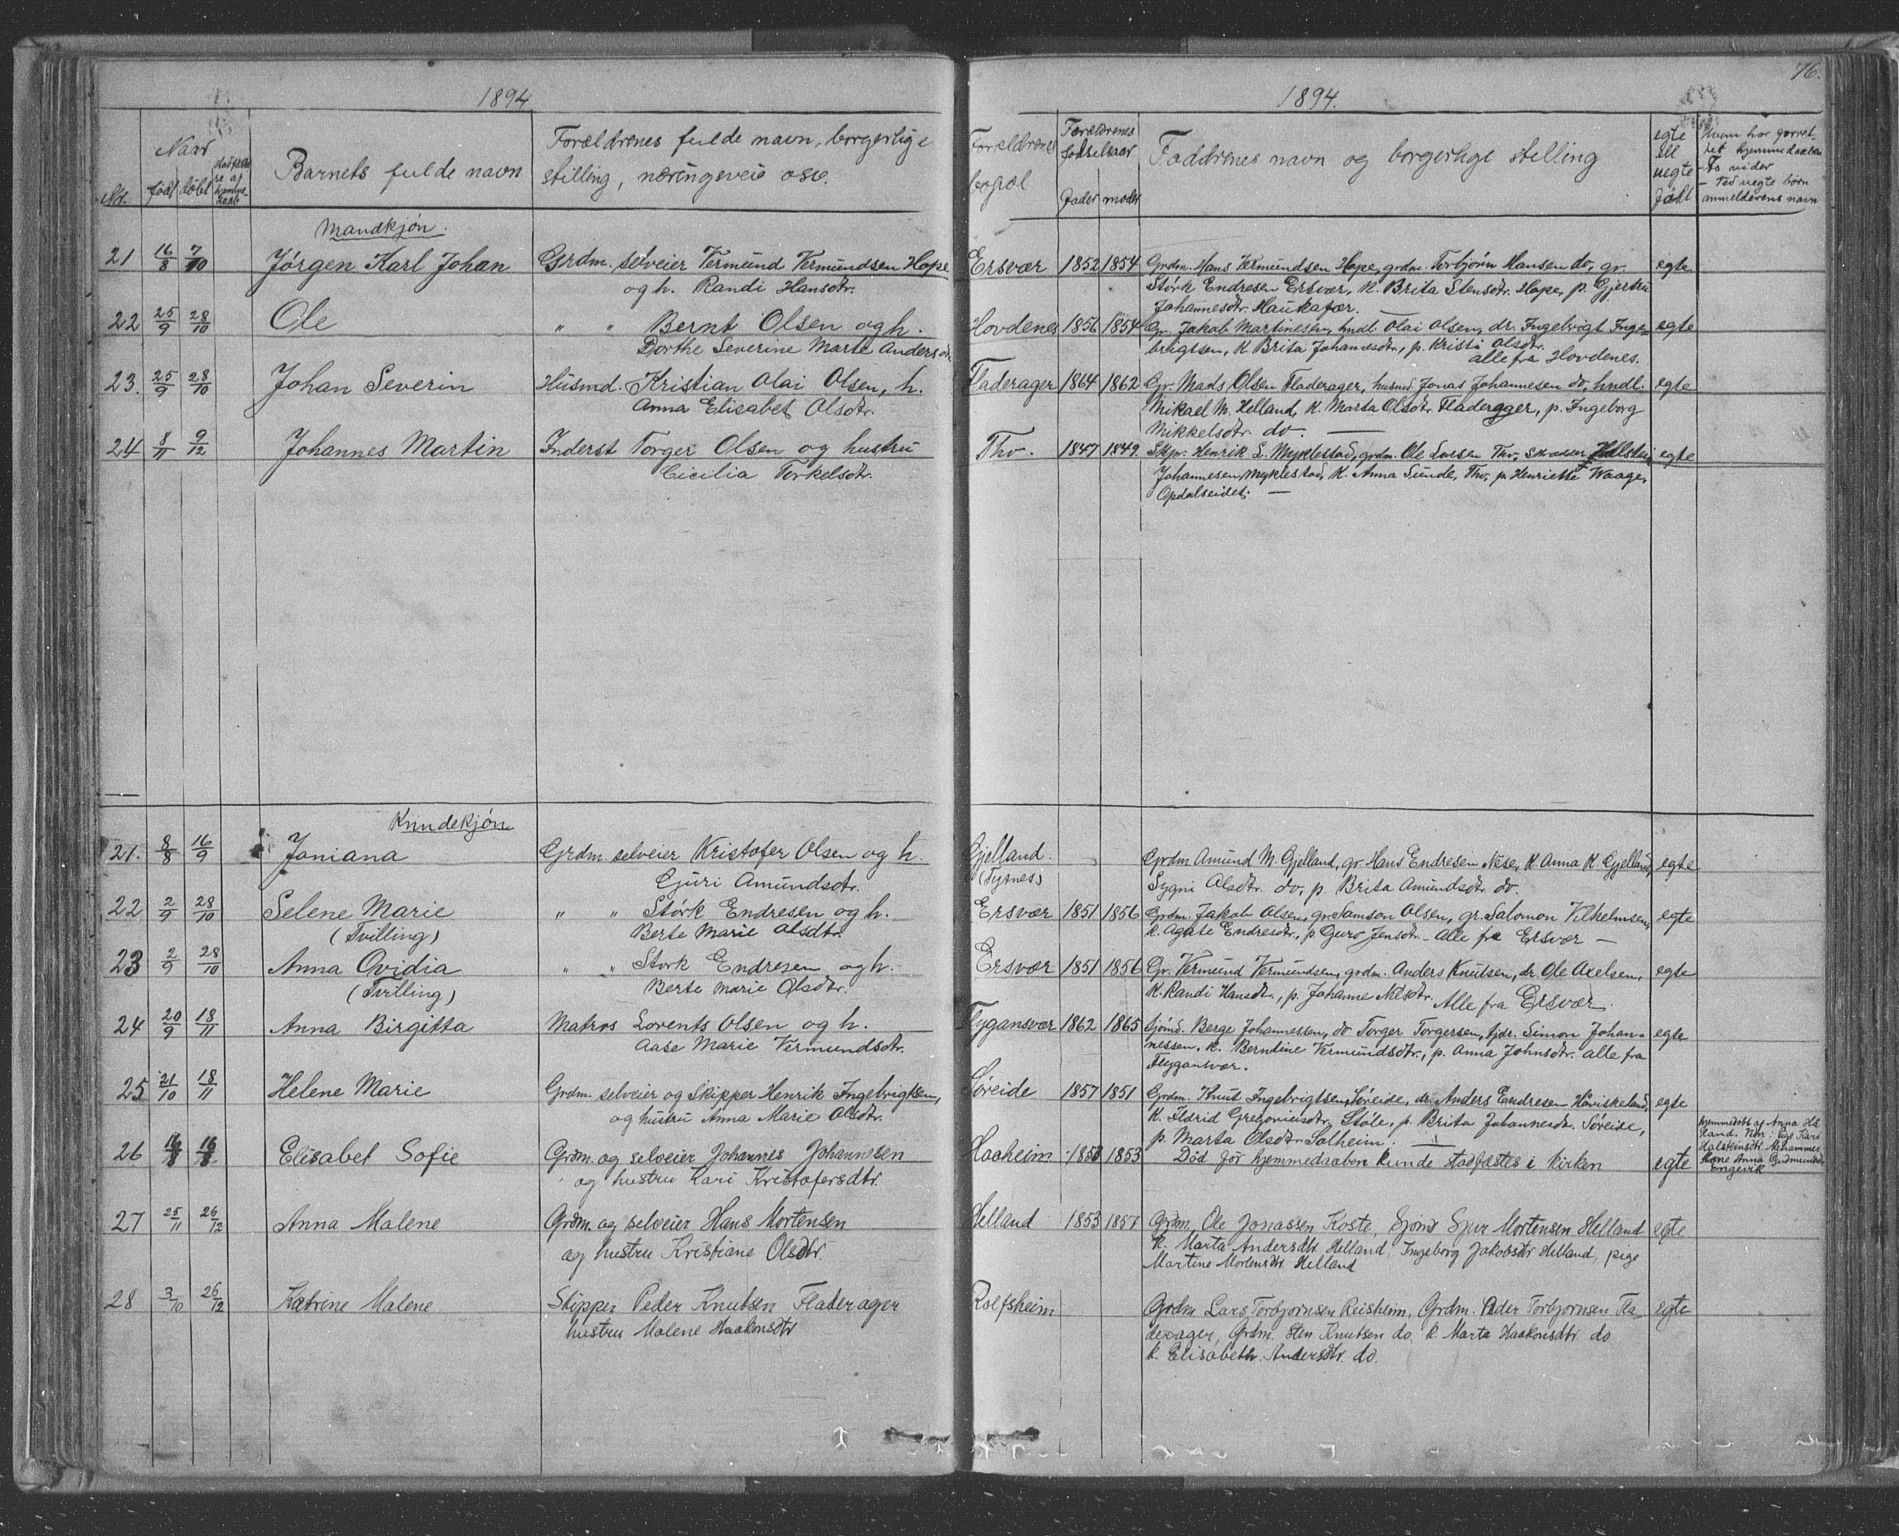 1894
Nr.
Naar
født
døbt
Barnets fulde navn
Forældrenes fulde navn, borgerlige
stilling, næringsveie osv.
Mandkjøn.
21 16/8 7/10 Jørgen Karl Johan Grdm. selveier Vermund Vermundsen Hope
og h. Randi Hansdtr.
22 25/9 28/10 Ole " " Bernt Olsen og h.
Dorthe Severine Marie Andersdtr.
23. 25/9 28/10 Johan Severin Husmd. Kristian Olai Olsen, h.
Anna Elisabet Olsdtr.
24 8/11 9/12 Johannes Martin Inderst Torger Olsen og hustru
Cicilia Torkelsdtr.
Kvindekjøn
21. 8/8 16/9 Joniana Grdm. selveier Kristofer Olsen og h.
Guri Amundsdtr.
22 2/9 28/10 Selene Marie " " Størk Endresen og h.
(Tvilling) Berte Marie Olsdtr.
23 2/9 28/10 Anna Ovidia " " Størk Endresen og h.
(Tvilling) Berte Marie Olsdtr.
24 20/9 18/11 Anna Birgitta Matros Lorents Olsen og h.
Aase Marie Vermundsdtr.
25 21/10 18/11 Helene Marie Grdm. selveier og Skipper Henrik Ingebrigtsen,
og hustru Anna Marie Olsdtr.
26 16/8 16/8 Elisabet Sofie Grdm. og selveier Johannes Johannsen
og hustru Kari Kristofersdtr.
27 25/11 26/12 Anna Malene Grdm. og selveier Hans Mortensen
og hustru Kristiane Olsdtr.
28 3/10 26/12 Katrine Malene Skipper Peder Knutsen Fladerager
hustru Malene Haakonsdtr
76.
1894.
Forældrenes
bopæl
Forældrenes
fødselsaar
fader moder
Faddrenes navn og borgerlige stilling
egte
ell
uegte
født
Hvem har forret-
tet hjemmedaaben
- To vidner
- Ved uegte børn
anmelderens navn
Ersvær 1852 1854 Grdm. Hans Vermundsen Hope, grdm. Torbjørn Hansen do, gr. egte
Størk Endresen Ersvær, k. Brita Stensdtr. Hope, p. Gjertru
Johannesdtr. Haukafær.
Hovdenes 1856 1854 Gr. Jakob Martinesen, hndl. Olai Olsen, dr. Ingebrigt Inge- egte
brigtsen, k. Brita Johannesdtr, p. Kristi Olsdtr.
alle fra Hovdenes.
Fladerager 1864 1862 Gr. Mads Olsen Fladerager, husmd. Jonas Johannesen do, hndl. egte
Mikael M. Helland, k. Marta Olsdtr. Fladerager, p. Ingeborg
Mikkelsdtr. do.
Tho. 1847 1849 Skpr. Henrik S. Myklestad, grdm. Ole Larsen Tho, Halstein egte
Johannesen Myklestad, k. Anna Sunde, Tho, p. Henriette Waage,
Opdalseidet.
Gjelland. Grdm Amund M. Gjelland, gr. Hans Endresen Nese, k. Anna K. Gjelland, egte
(Tysnes) Sygni Olsdtr. do, p. Brita Amundsdtr. do.
Ersvær 1851 1856 Grdm. Jakob Olsen, gr. Samson Olsen, gr. Salomon Vilhelmsen, egte
k. Agate Endresdtr., p Guro Jensdtr. - alle fra Ersvær -
Ersvær 1851 1856 Gr. Vermund Vermundsen, grdm. Anders Knutsen, dr. Ole Axelsen, egte
k. Randi Hansdtr., p. Johanne Nilsdtr. Alle fra Ersvær.
Flygansvær 1862 1865 Sjømd. Berge Johannessen, do Torger Torgersen, fjdr. Simon Johan- egte
nessen, k. Berntine Vermundsdtr., p. Anna Johnsdtr. alle fra
Flygansvær.
Søreide 1857 1851 Grdm. Knut Ingebrigtsen, Søreide, dr. Anders Endresen Håviskeland, egte
k. Eldrid Gregoriusdtr. Støle, p. Brita Johannesdtr. Søreide,
p. Marta Olsdtr. Solheim.
Haaheim 1853 Død før hjemmedaaben kunde stadfæstes i kirken egte
hjemmedøbt af Anna
Pige Kari
Halsteinsdtr.
Kone Anna Gudmundsdtr
Engevik
Helland 1853 1857 Grdm. Ole Jonassen Koste, Sjomd Sjur Mortensen Helland egte
k. Marta Andersdtr Helland, Ingeborg Jakobsdtr Helland, pige
Martine Mortensdtr. Helland
Rolfsheim Grdm Lars Torbjornsen Reisheim, Grdm. Peder Torbjornsen Fla- egte
derager, Grdm. Sten Knutsen do, k. Marta Haakonsdtr. do
k. Elisabeth Andersdtr. do.